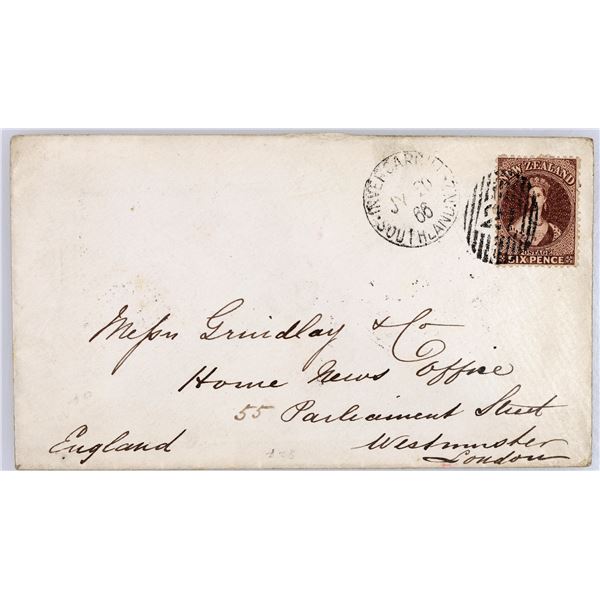 INVERCARGILL
JY 20
66
SOUTHLAND
NEW ZEALAND
POSTAGE
SIX PENCE
Messrs Grindlay & Co
Home News Office
55 Parliament Street
England Westminster
London